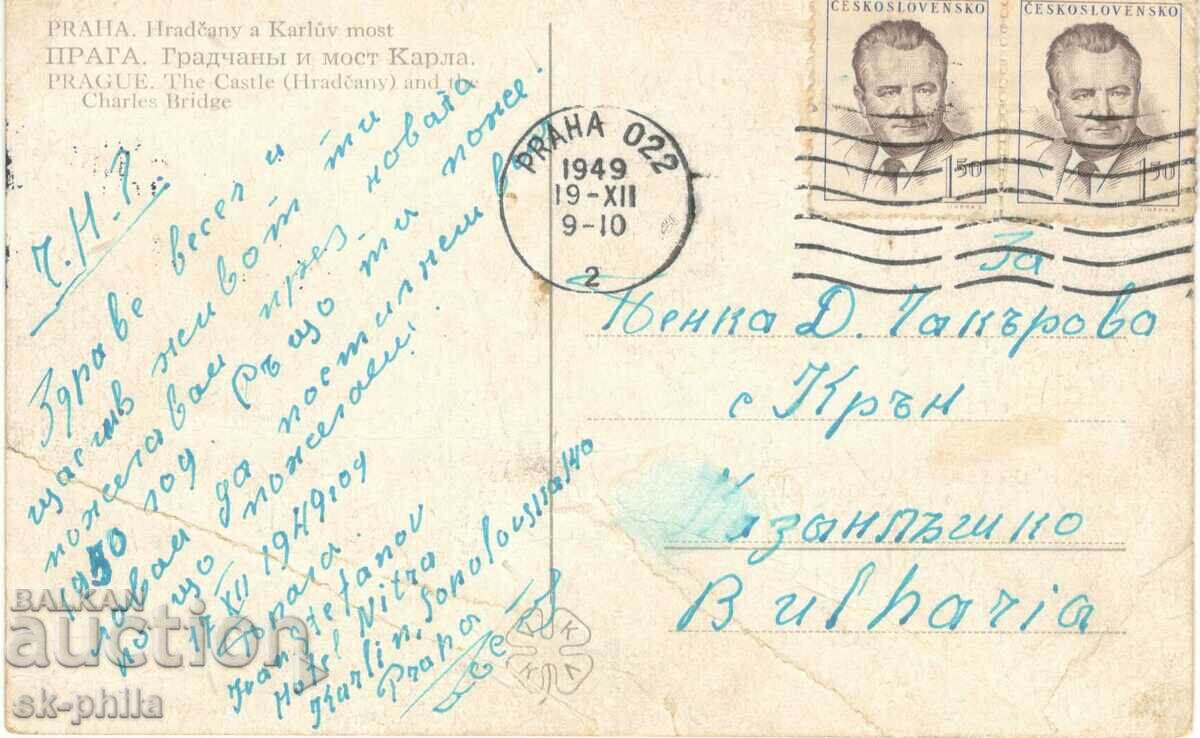 PRAHA. Hradčany a Karlův most
ПРАГА. Градчаны и мост Карла.
PRAGUE. The Castle (Hradčany) and the
Charles Bridge
ČESKOSLOVENSKO
1.50
ČESKOSLOVENSKO
1.50
PRAHA 022
1949
19-XII
9-10
2
Ч.Н.Г.
Здраве весел и
щастив живот ти
пожелавам през новата
1950 год
да постигнеш
пожелаеш!
17 XII 1949 год
Прага.
Ivan Stefanov
Hotel Nitra
Karlin, Sokolovska 140
Praha
За
Пенка Д. Чакърова
с Крън
Казанлъшко
Bulharia
BALKAN
auction
sk-phila